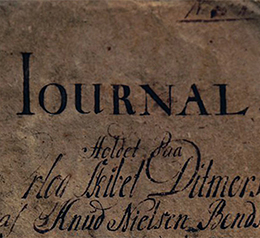 IOURNAL
Holdet Paa
Ditmers
af Knud Nielsen Bends